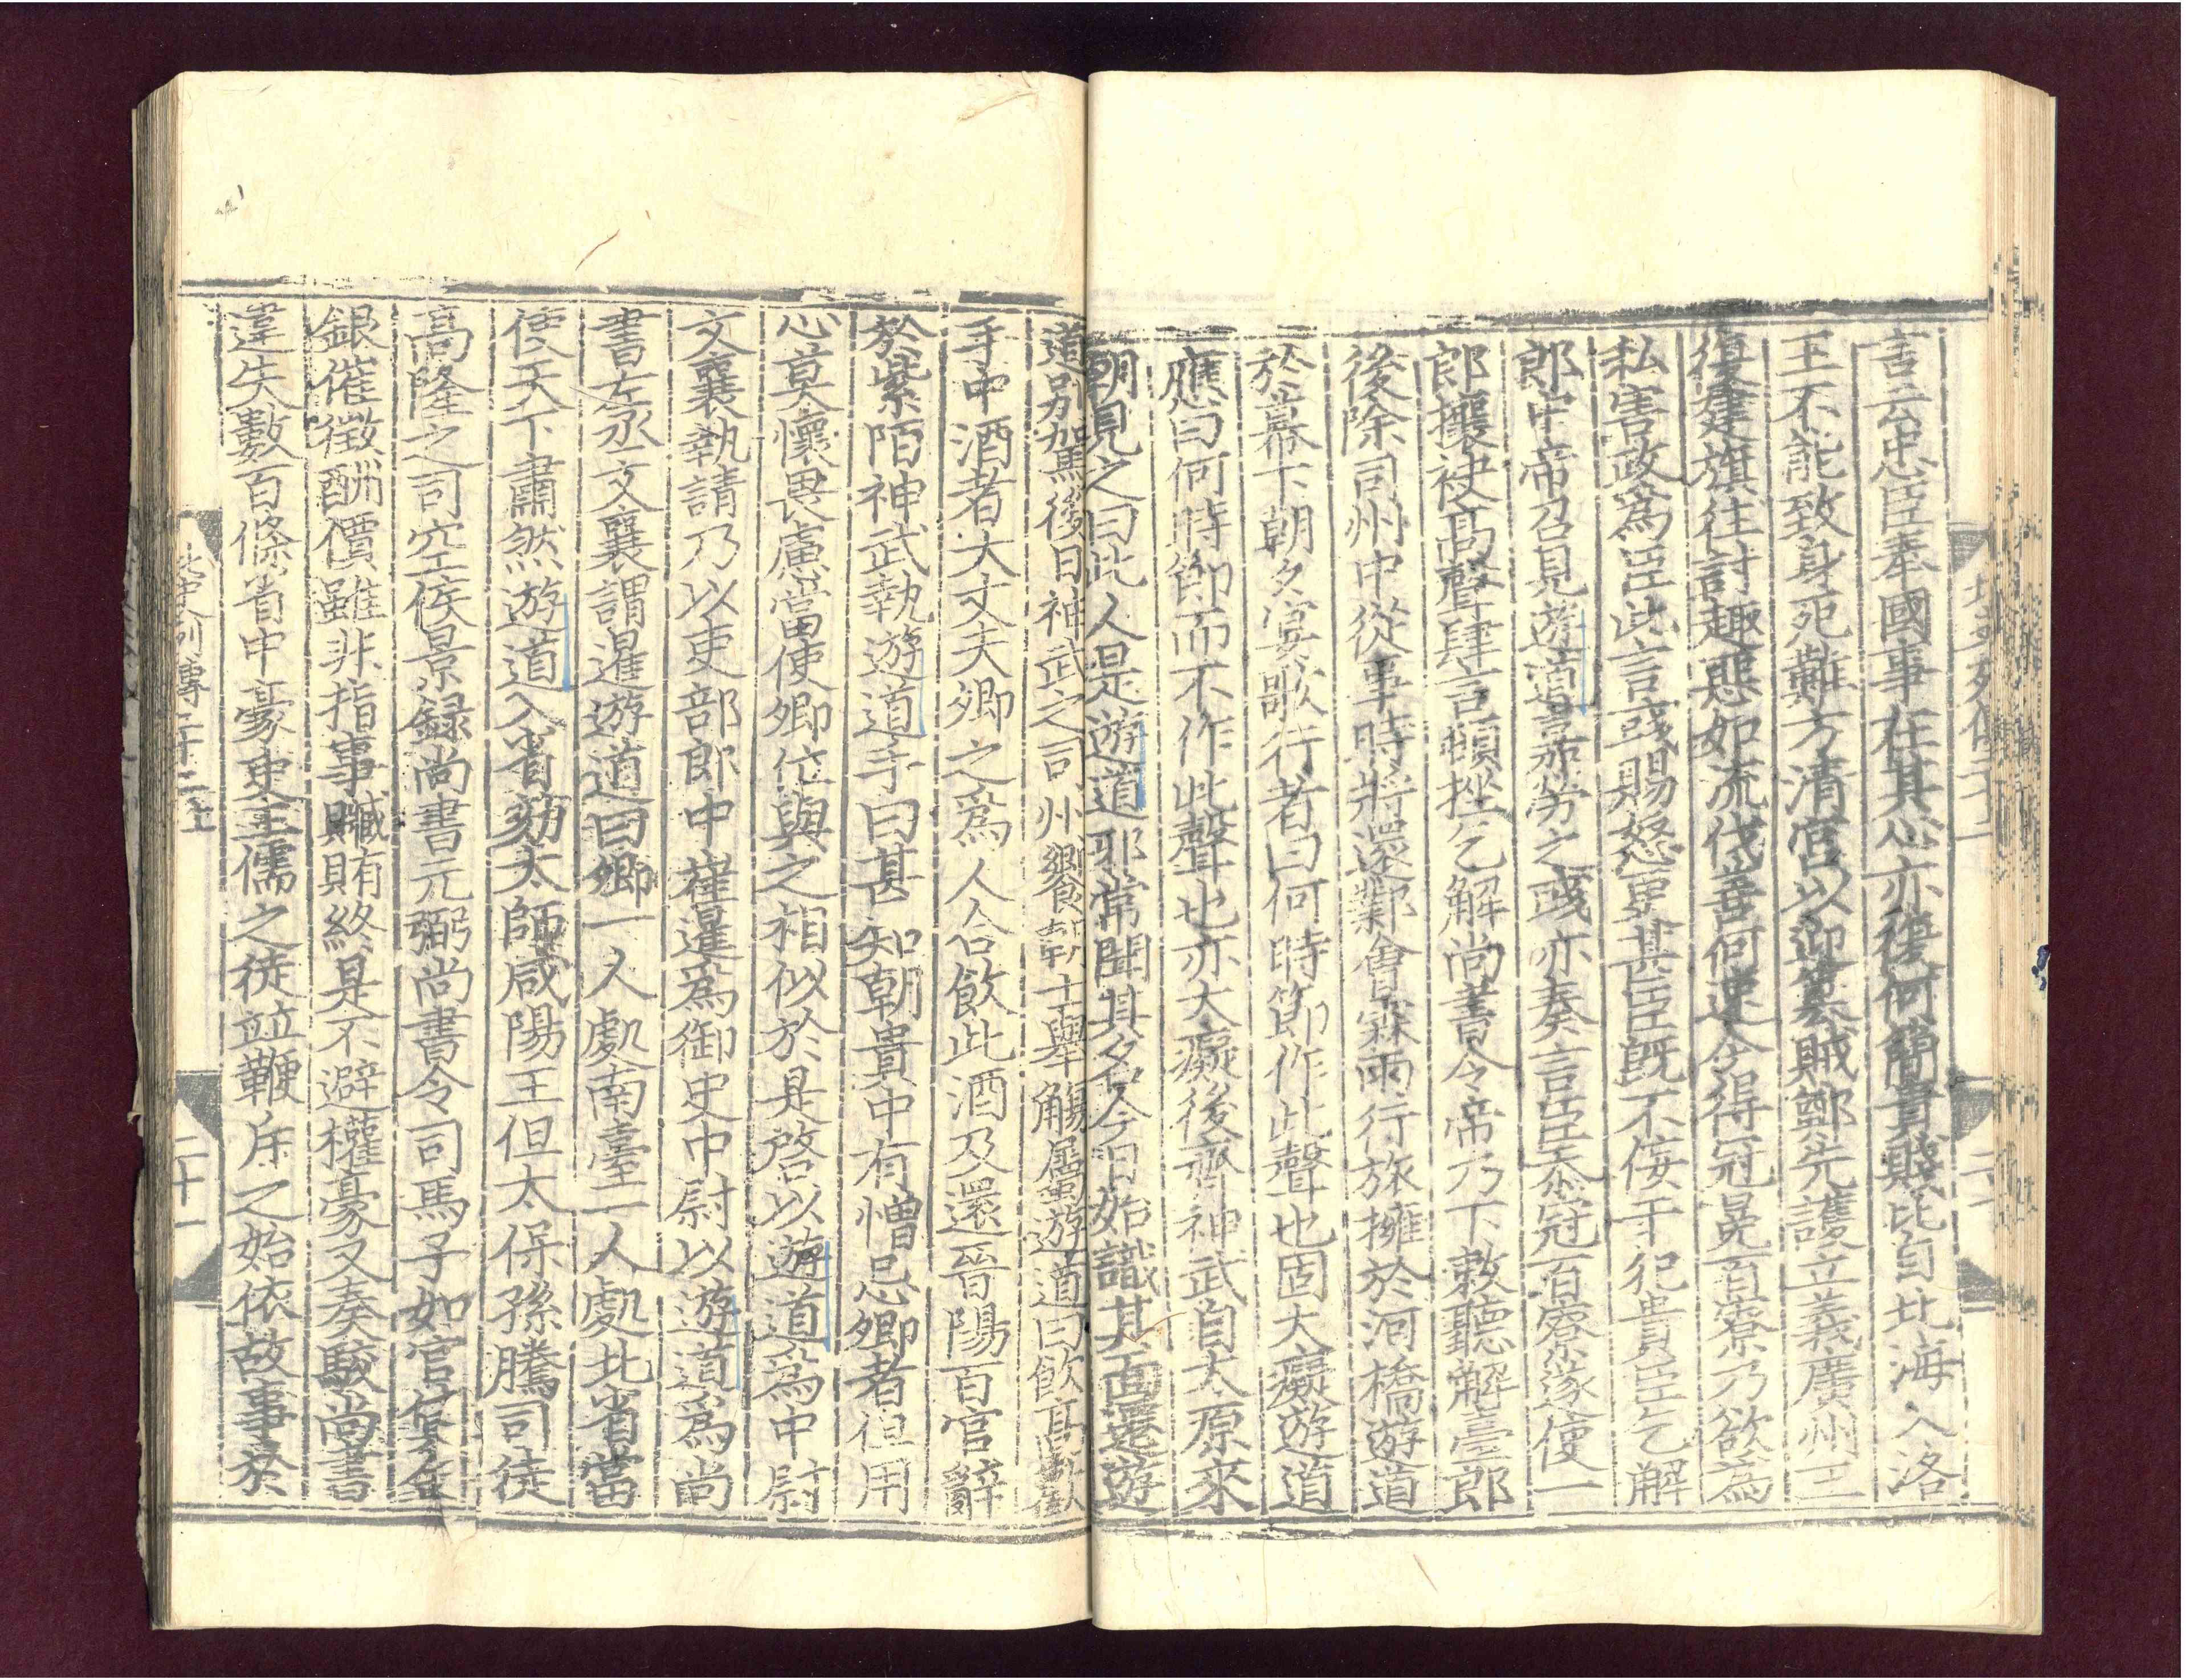 言云忠臣奉國事在其心亦復何簡貴賤比自北海入洛
王不能致身死難方清宮以迎篡賊鄭先護立義廣州王
復建旗往討趣惡如流伐善何速今得冠冕百寮乃欲為
私害政為臣此言彧賜怒更甚臣既不佞干犯貴臣乞解
郎中帝召見遊道嘉勞之彧亦奏言臣忝冠百寮遂使一
郎攘袂高聲肆言頓挫乞解尚書令帝乃下敕聽解臺郎
後除司州中從事時將還鄴會霖雨行旅擁於河橋遊道
於幕下朝夕宴歌行者曰何時節作此聲也固大癡遊道
應曰何時節而不作此聲也亦大癡後齊神武自太原來
朝見之曰此人是遊道邪常聞其名今日始識其面遷遊
道別駕後日神武之司州饗朝士舉觴屬遊道曰飲高歡
手中酒者大丈夫卿之為人合飲此酒及還晉陽百官辭
於紫陌神武執遊道手曰甚知朝貴中有憎忌卿者但用
心莫懷畏慮當使卿位與之相似於是啓以遊道為中尉
文襄執請乃以吏部郎中崔暹為御史中尉以遊道為尚
書左丞文襄謂暹遊道曰卿一人處南臺一人處北省當
使天下肅然遊道入省劾太師咸陽王但太保孫騰司徒
高隆之司空侯景録尚書元弼尚書令司馬子如官貸金
銀催徵酬價雖非指事贓賄終是不避權豪又奏駁尚書
違失數百條省中豪吏王儒之徒竝鞭斥之始依故事於
北史列傳二十二上
二十一